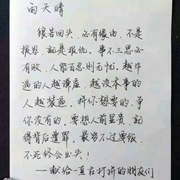 雨天晴
猛苦回头，必有缘由，不是
报恩，就是报仇，事不三思必
有败，人能百忍则无忧，越牛
逼的人越谦虚，越没本事的
人越装逼，并你想要的，争
你没有的，要想人前显贵，就
得背后遭罪，最穷不过要饭
不死终会出头！
——献给一直在打拼的朋友们